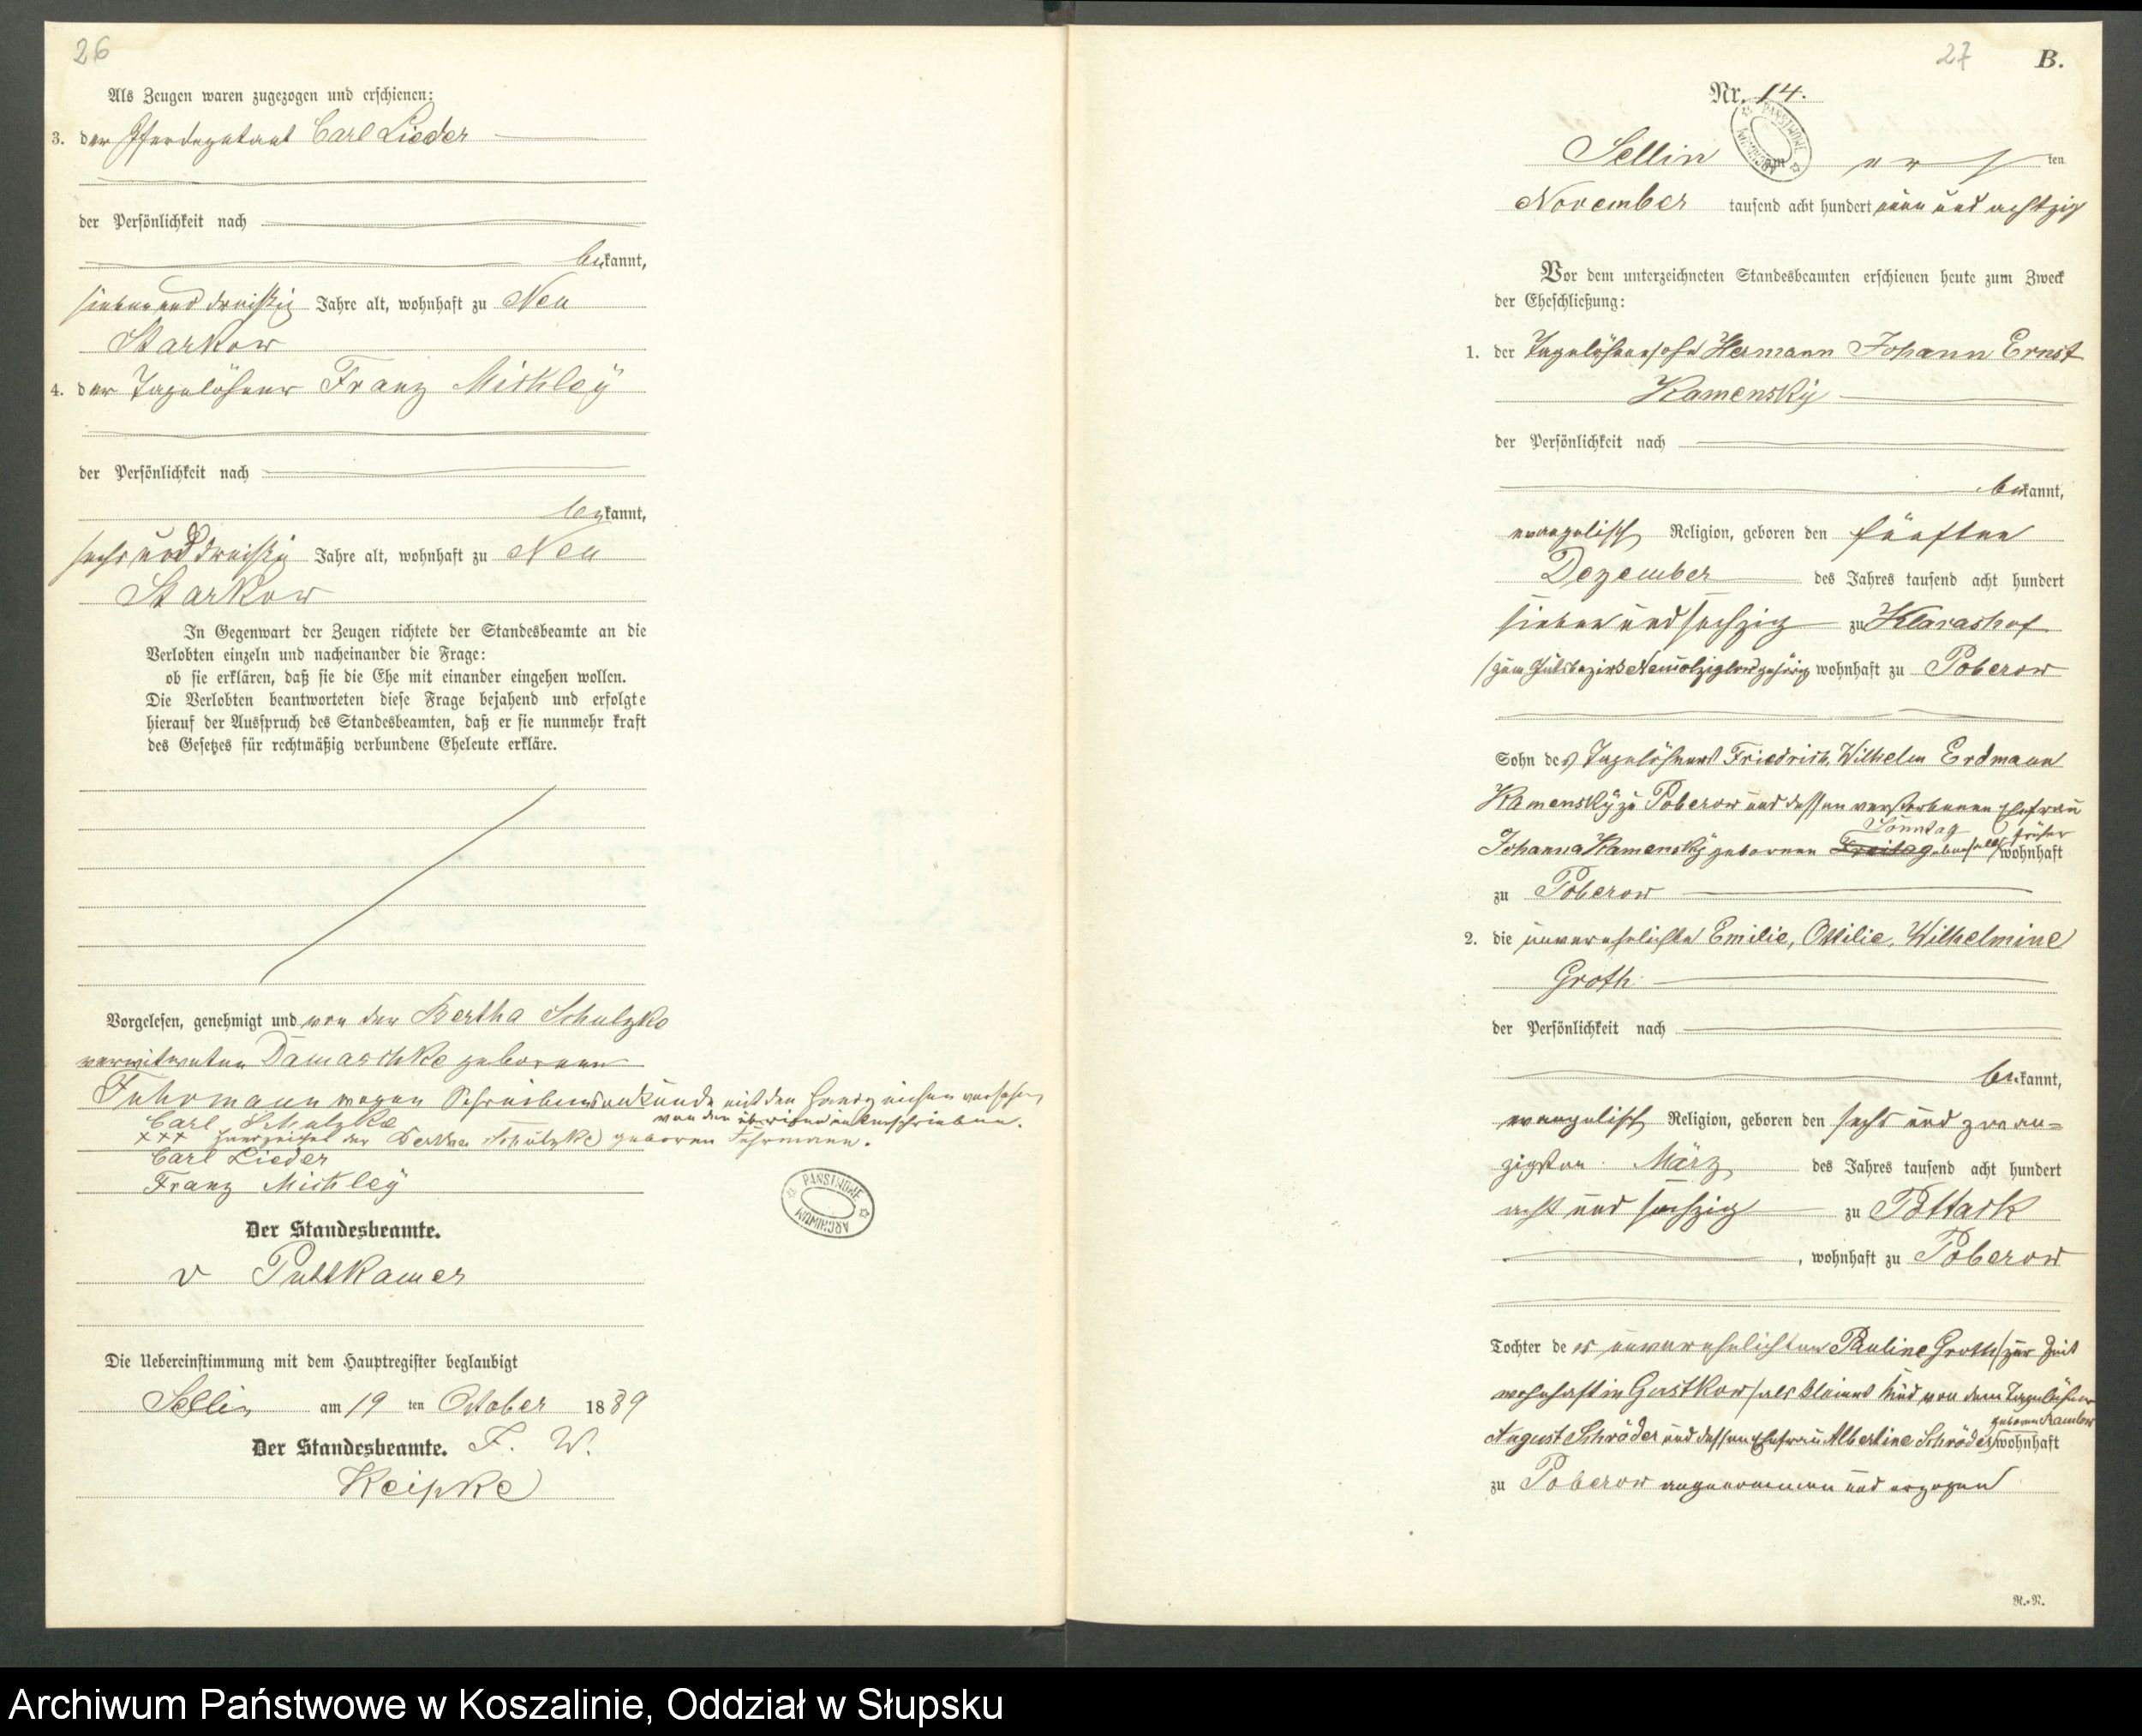 26
Als Zeugen waren zugezogen und erschienen:
3. der Pferdeknecht Carl Lieder
der Persönlichkeit nach
bekannt,
sieben und dreißig Jahre alt, wohnhaft zu Neu
Starkow
4. der Tagelöhner Franz Mischley
der Persönlichkeit nach
bekannt,
sechs und dreißig Jahre alt, wohnhaft zu Neu
Starkow
In Gegenwart der Zeugen richtete der Standesbeamte an die
Verlobten einzeln und nacheinander die Frage:
ob sie erklären, daß sie die Ehe mit einander eingehen wollen.
Die Verlobten beantworteten diese Frage bejahend und erfolgte
hierauf der Ausspruch des Standesbeamten, daß er sie nunmehr kraft
des Gesetzes für rechtmäßig verbundene Eheleute erkläre.
Vorgelesen, genehmigt und von der Bertha Schulzke
verwitweten Damaschke geborenen
Fuhrmann wegen Schreibensunkunde mit den Handzeichen versehen,
von den übrigen unterschrieben.
Carl Schulzke
xxx Handzeichen der Bertha Schulzke geborenen Fuhrmann.
Carl Lieder
Franz Mischley
PAŃSTWOWE ARCHIWUM
Der Standesbeamte.
v Puttkamer
Die Uebereinstimmung mit dem Hauptregister beglaubigt
Sellin am 19 ten October 1889
Der Standesbeamte. F. W.
Keipke
27 B.
Nr. 14.
PAŃSTWOWE ARCHIWUM
Sellin am ten
November tausend acht hundert neun und achtzig
Vor dem unterzeichneten Standesbeamten erschienen heute zum Zweck
der Eheschließung:
1. der Tagelöhnersohn Hermann Johann Ernst
Kamensky
der Persönlichkeit nach
bekannt,
evangelisch Religion, geboren den fünften
Dezember des Jahres tausend acht hundert
sieben und sechzig zu Klarashof
/zum Gutsbezirk gehörig wohnhaft zu Poberow
Sohn des Tagelöhners Friedrich, Wilhelm Erdmann
Kamensky zu Poberow und dessen verstorbenen Ehefrau
Sonntag früher
Johanna Kamensky geborenen Freitag ebenfalls wohnhaft
zu Poberow
2. die unverehelichte Emilie, Ottilie, Wilhelmine
Groth
der Persönlichkeit nach
bekannt,
evangelisch Religion, geboren den sechs und zwan=
zigsten März des Jahres tausend acht hundert
acht und sechzig zu Pottack
, wohnhaft zu Poberow
Tochter de er unverehelichten Pauline Groth /zur Zeit
wohnhaft in Gustkow/ als kleines Kind von dem Tagelöhner
geborenen Ramlow
August Schröder und dessen Ehefrau Albertine Schröder wohnhaft
zu Poberow angenommen und erzogen
R.-N.
Archiwum Państwowe w Koszalinie, Oddział w Słupsku